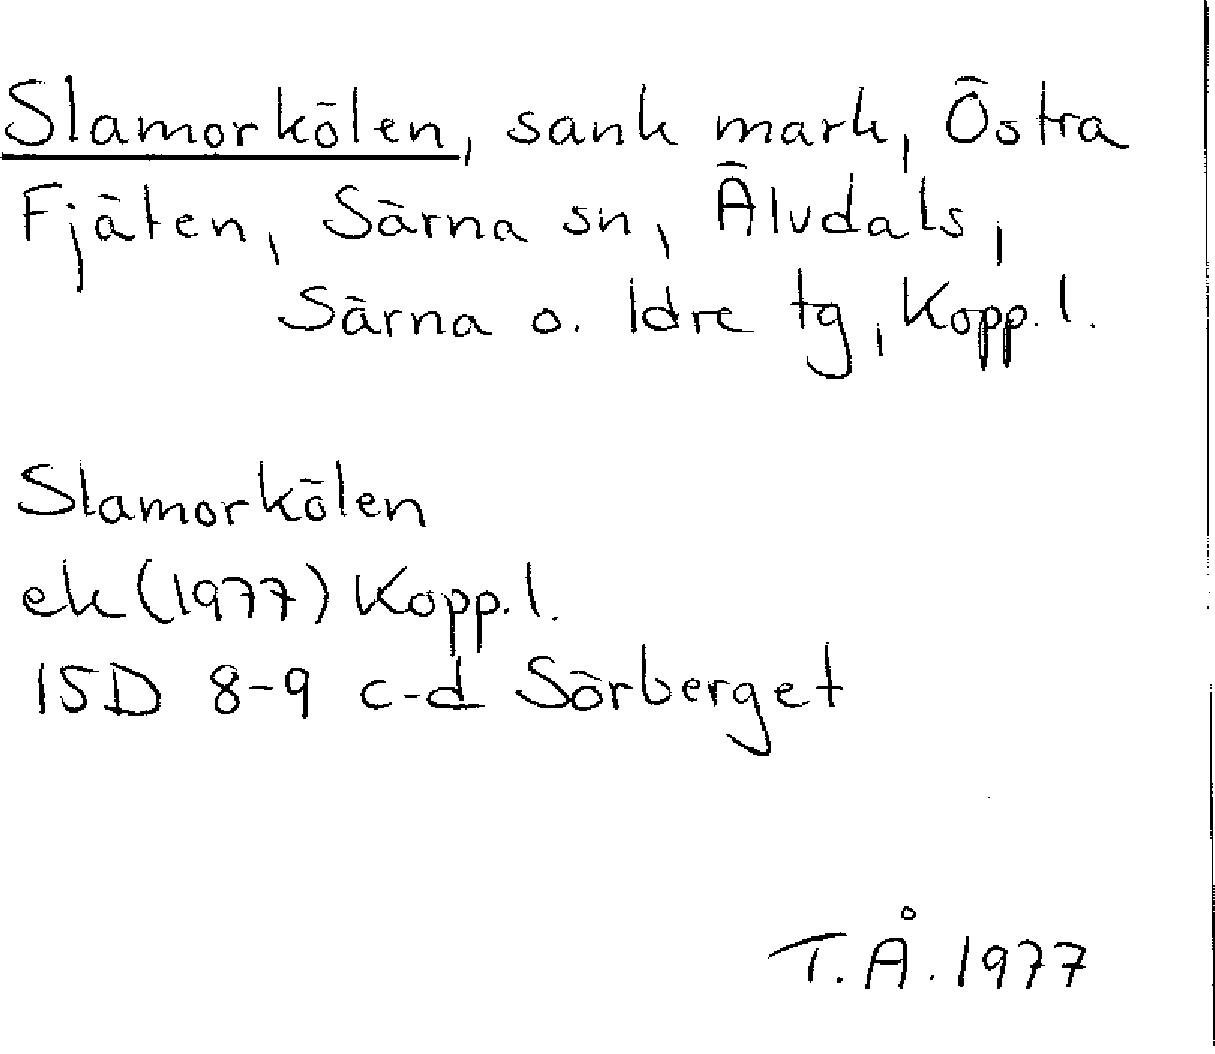 Slamorkölen, sank mark, Östra
Fjäten, Särna sn, Älvdals,
Särna o. Idre tg, Kopp. l.
Slamorkölen
ek (1977) Kopp. l.
15D 8-9 c-d Sörberget
T.Å. 1977